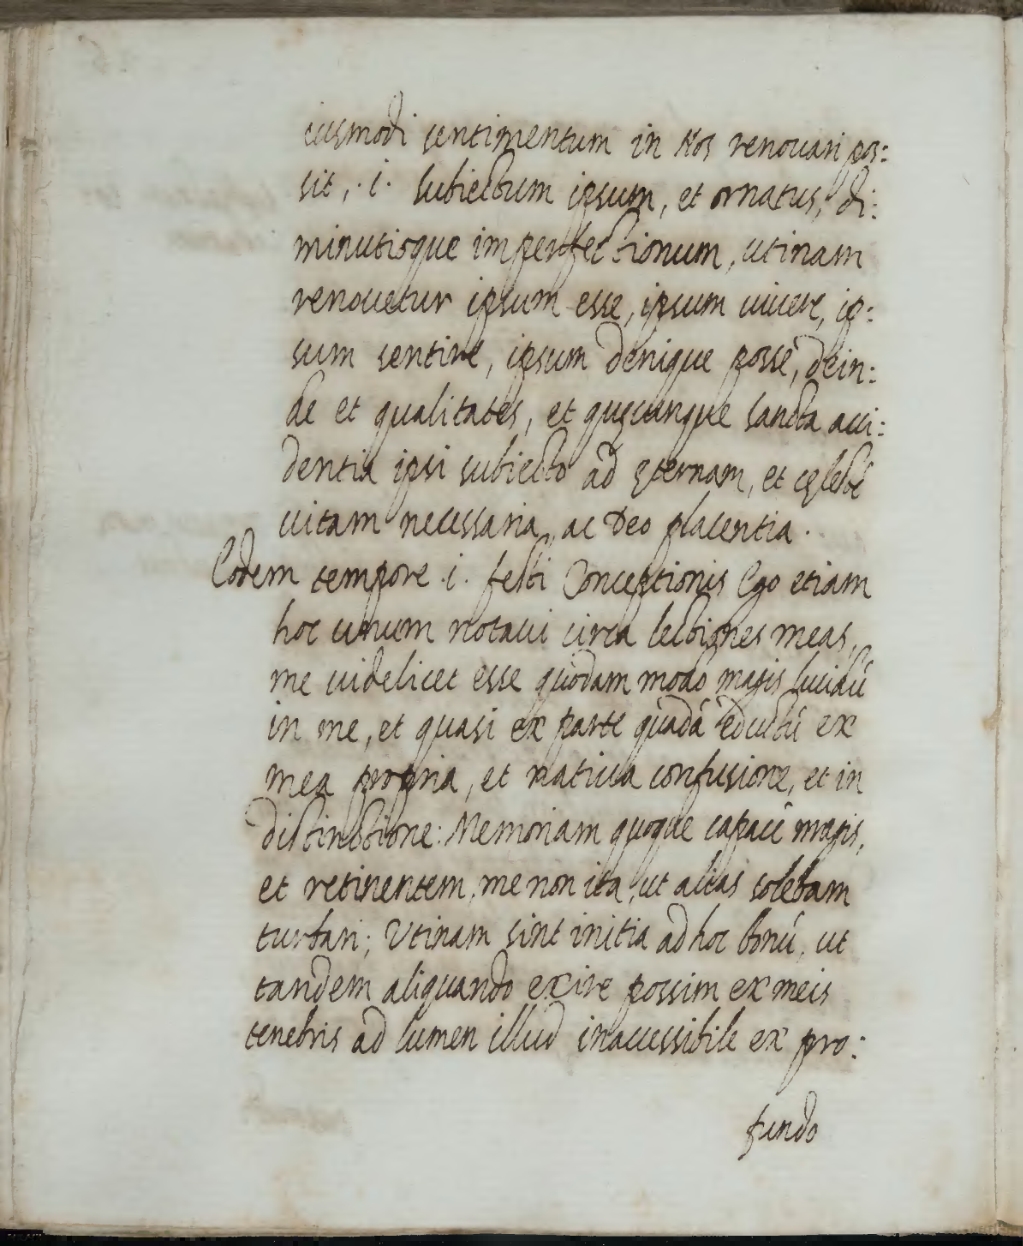 eiusmodi sentimentum in Nos renovari pos:
sit, .i. subiectum ipsum, et ornatus, di:
minutioque imperfectionum, utinam
renovetur ipsum esse, ipsum vivere, ip:
sum sentire, ipsum denique posse, dein:
de et qualitates, et quęcunque sancta acci:
dentia ipsi subiecto ad ęternam, et cęlestē
vitam necessaria, ac Deo placentia.
Eodem tempore .i. festi Conceptionis Ego etiam
hoc unum notavi circa lectiones meas,
me videlicet esse quodam modo magis lucidū
in me, et quasi ex parte quadā eductū ex
mea propria, et nativa confusione, et in
distinctione: Memoriam quoque capacē magis,
et retinentem, me non ita, ut alias solebam
turbari; Utinam sint initia ad hoc bonū, ut
tandem aliquando exire possim ex meis
tenebris ad lumen illud inaccessibile ex pro:
fundo